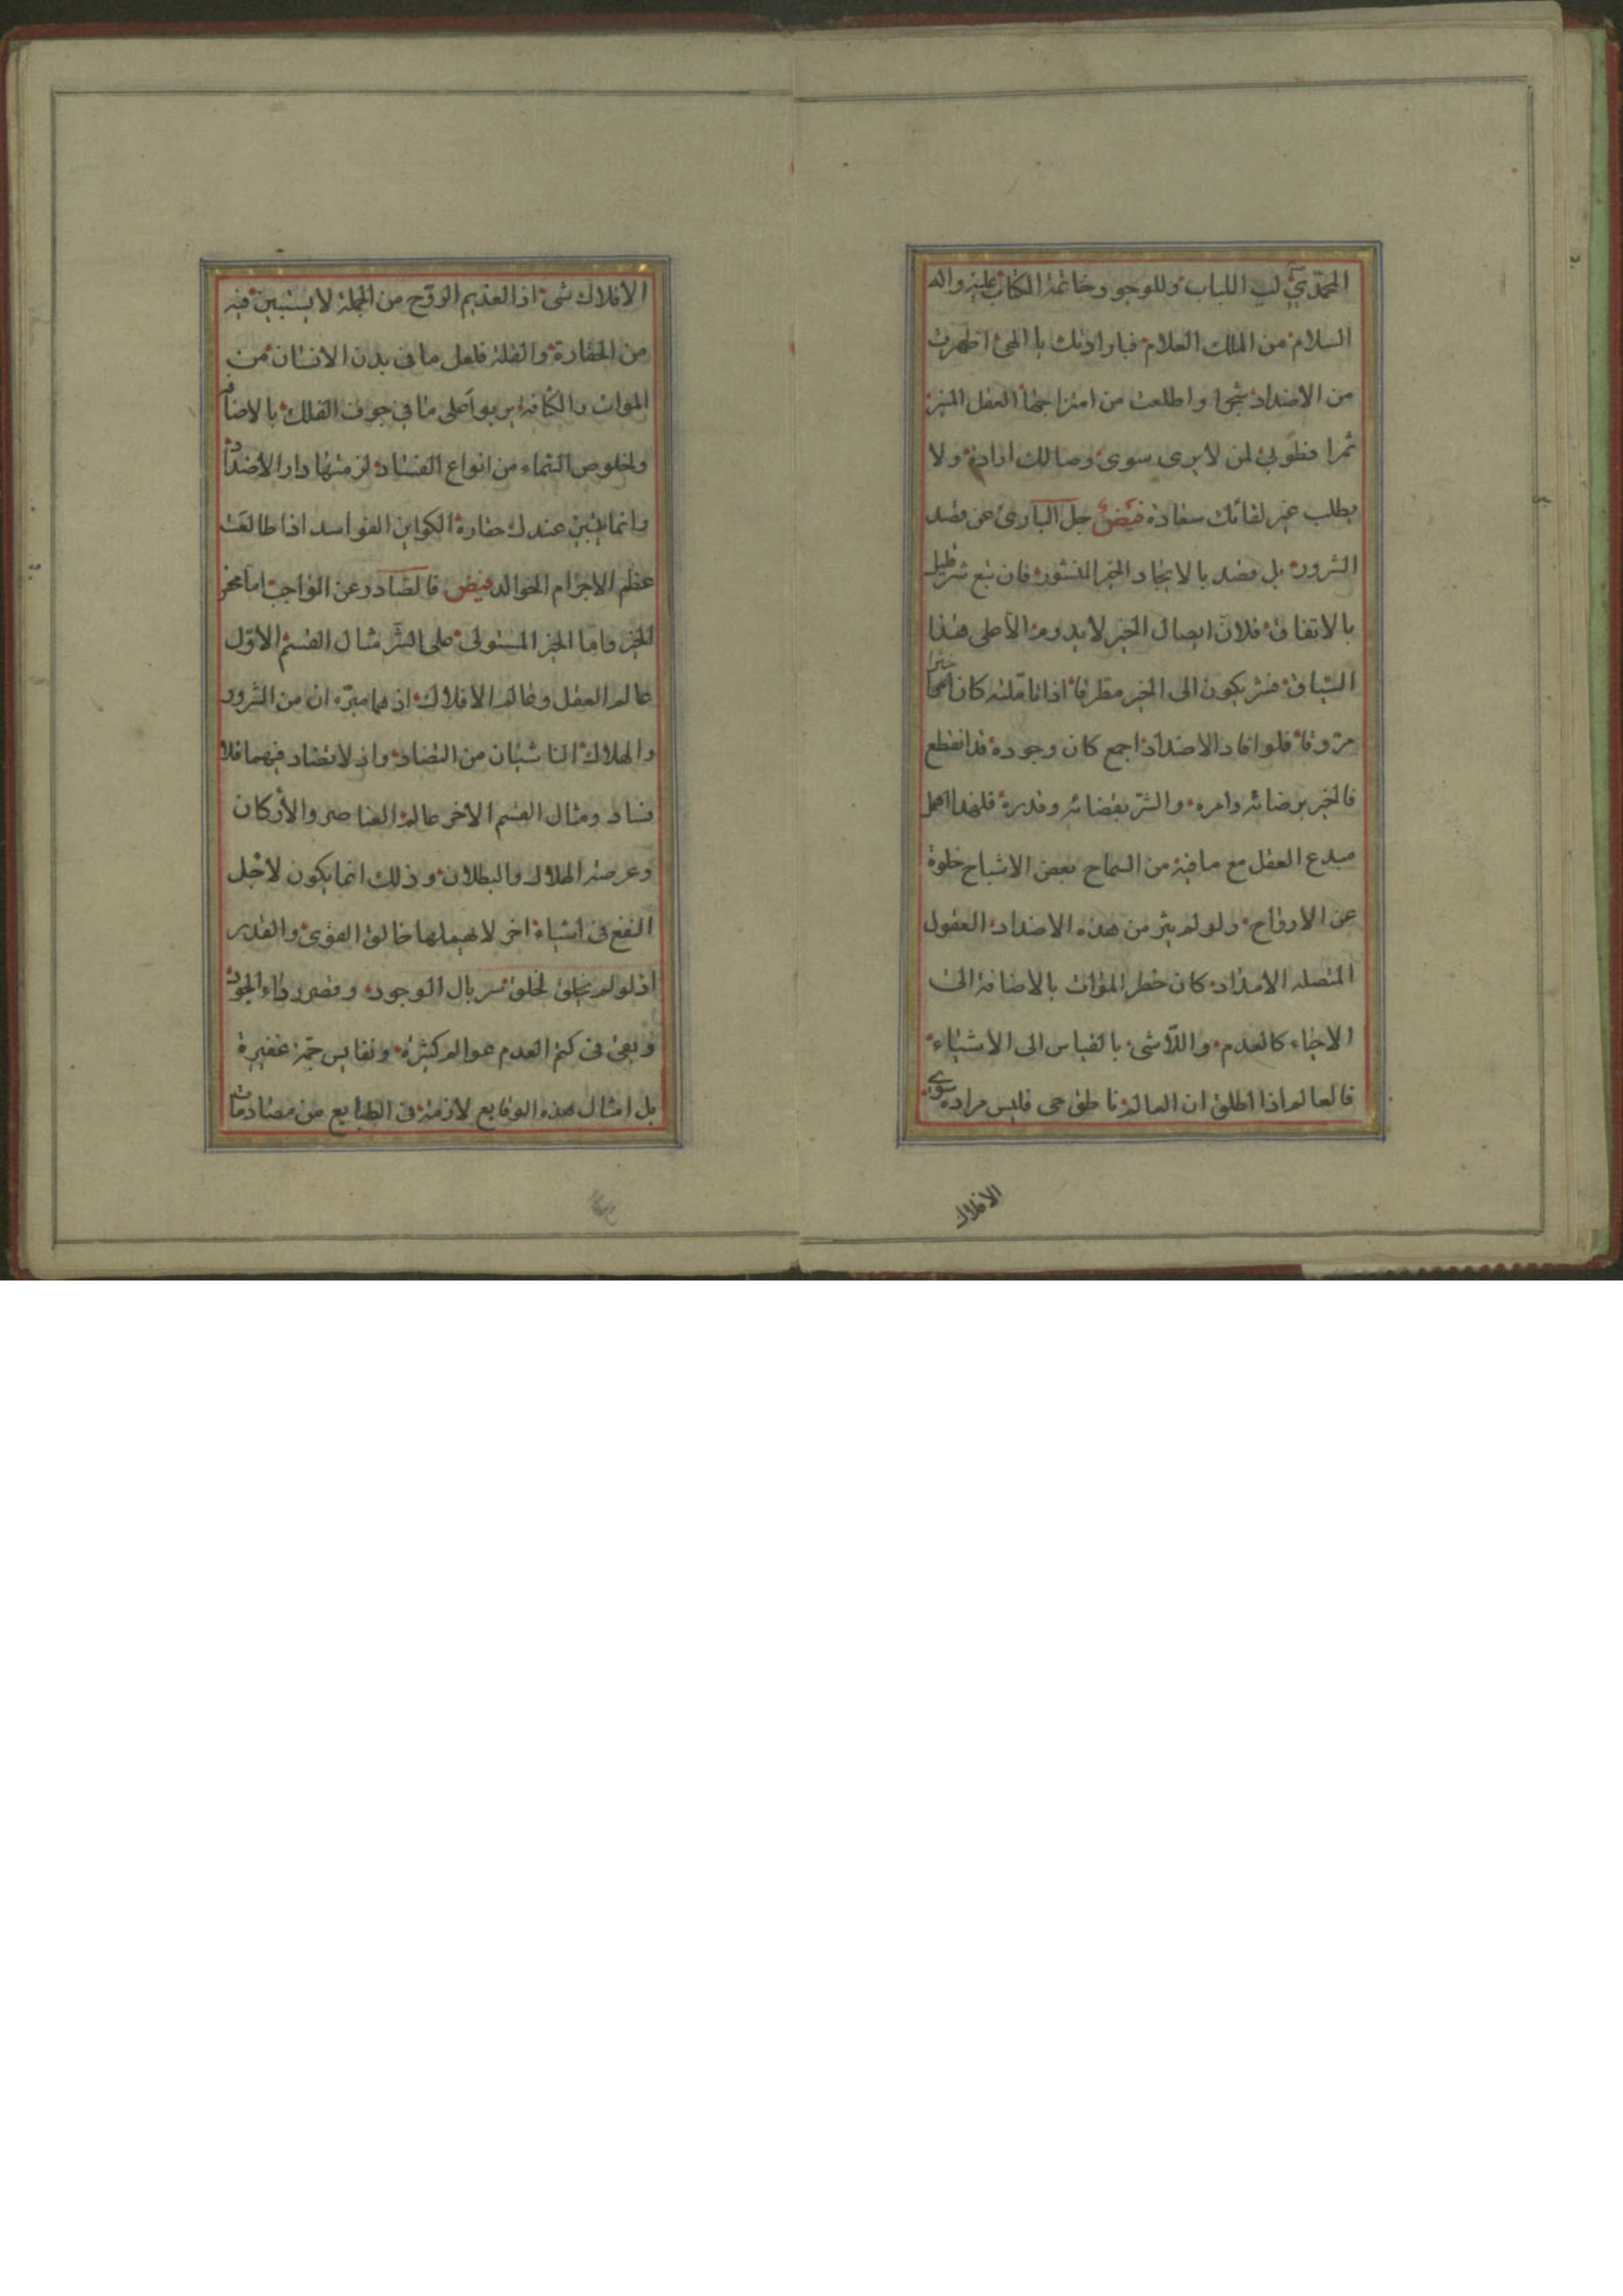 المحمدي لب اللباب وللوجود خاتمة الكتاب عليه واله
السلام من الملك العلام فبارادتك يا الهي اظهرت
من الاضداد شجرا واطلعت من امتزاجها العقل المنير
ثمرا فطوبى لمن لا يرى سوى وصالك ارادة ولا
يطلب غير لقائك سعادة فيض جل الباري عن قصد
الشرور بل قصد بالايجاد الخير المنشور فان تبع شر قليل
بالاتفاق فلان ايصال الخير لا يدوم الا على هذا
السياق فشر يكون الى الخير مطرقا اذا تاملته كان
فلو افاد الاضداد اجمع كان وجوده قد انقطع
فالخير برضائه وامره والشر بقضائه وقدره فلهذا اهمل
مبدع العقل مع ما فيه من السماح بعض الاشباح خلوة
عن الارواح ولو لم يثر من هذه الاضداد العقول
المتصله الامداد كان خطر الموات بالاضافة الى
الاحياء كالعدم واللاشى بالقياس الى الاشياء
فالعالم اذا اطلق ان العالم ناطق حى فليس مراده سوى
الافلاك
الافلاك شى اذ العديم الروح من الجملة لا يستبين فيه
من الحقارة والقلة فلعل ما في بدن الانسان من
الموات والكثافة يربو على ما في جوف الفلك بالاضافة
ولخلوص السماء من انواع الفساد لزمتها دار الاضداد
وانما يتبين عندك حقارة الكواين الفواسد اذا طالعت
عظم الاجرام الخوالد فيض فالصادر عن الواجب اما محض
الخير واما الخير المستولى على الشر مثال القسم الاول
عالم العقل وعالم الافلاك اذ هما مبرءان من الشرور
والهلاك الناشيان من التضاد واذ لا تضاد فيهما فلا
فساد ومثال القسم الاخر عالم العناصر والاركان
وعرصة الهلاك والبطلان وذلك انما يكون لاجل
النفع فى اشياء اخر لا يهملها خالق القوى والقدر
اذ لو لم يخلق لخلق سربال الوجود وقصر رداء الجود
وبقى فى كتم العدم عوالم كثيرة ونفايس جمة غفيرة
بل امثال هذه الوقايع لازمة فى الطبايع من مصادمات